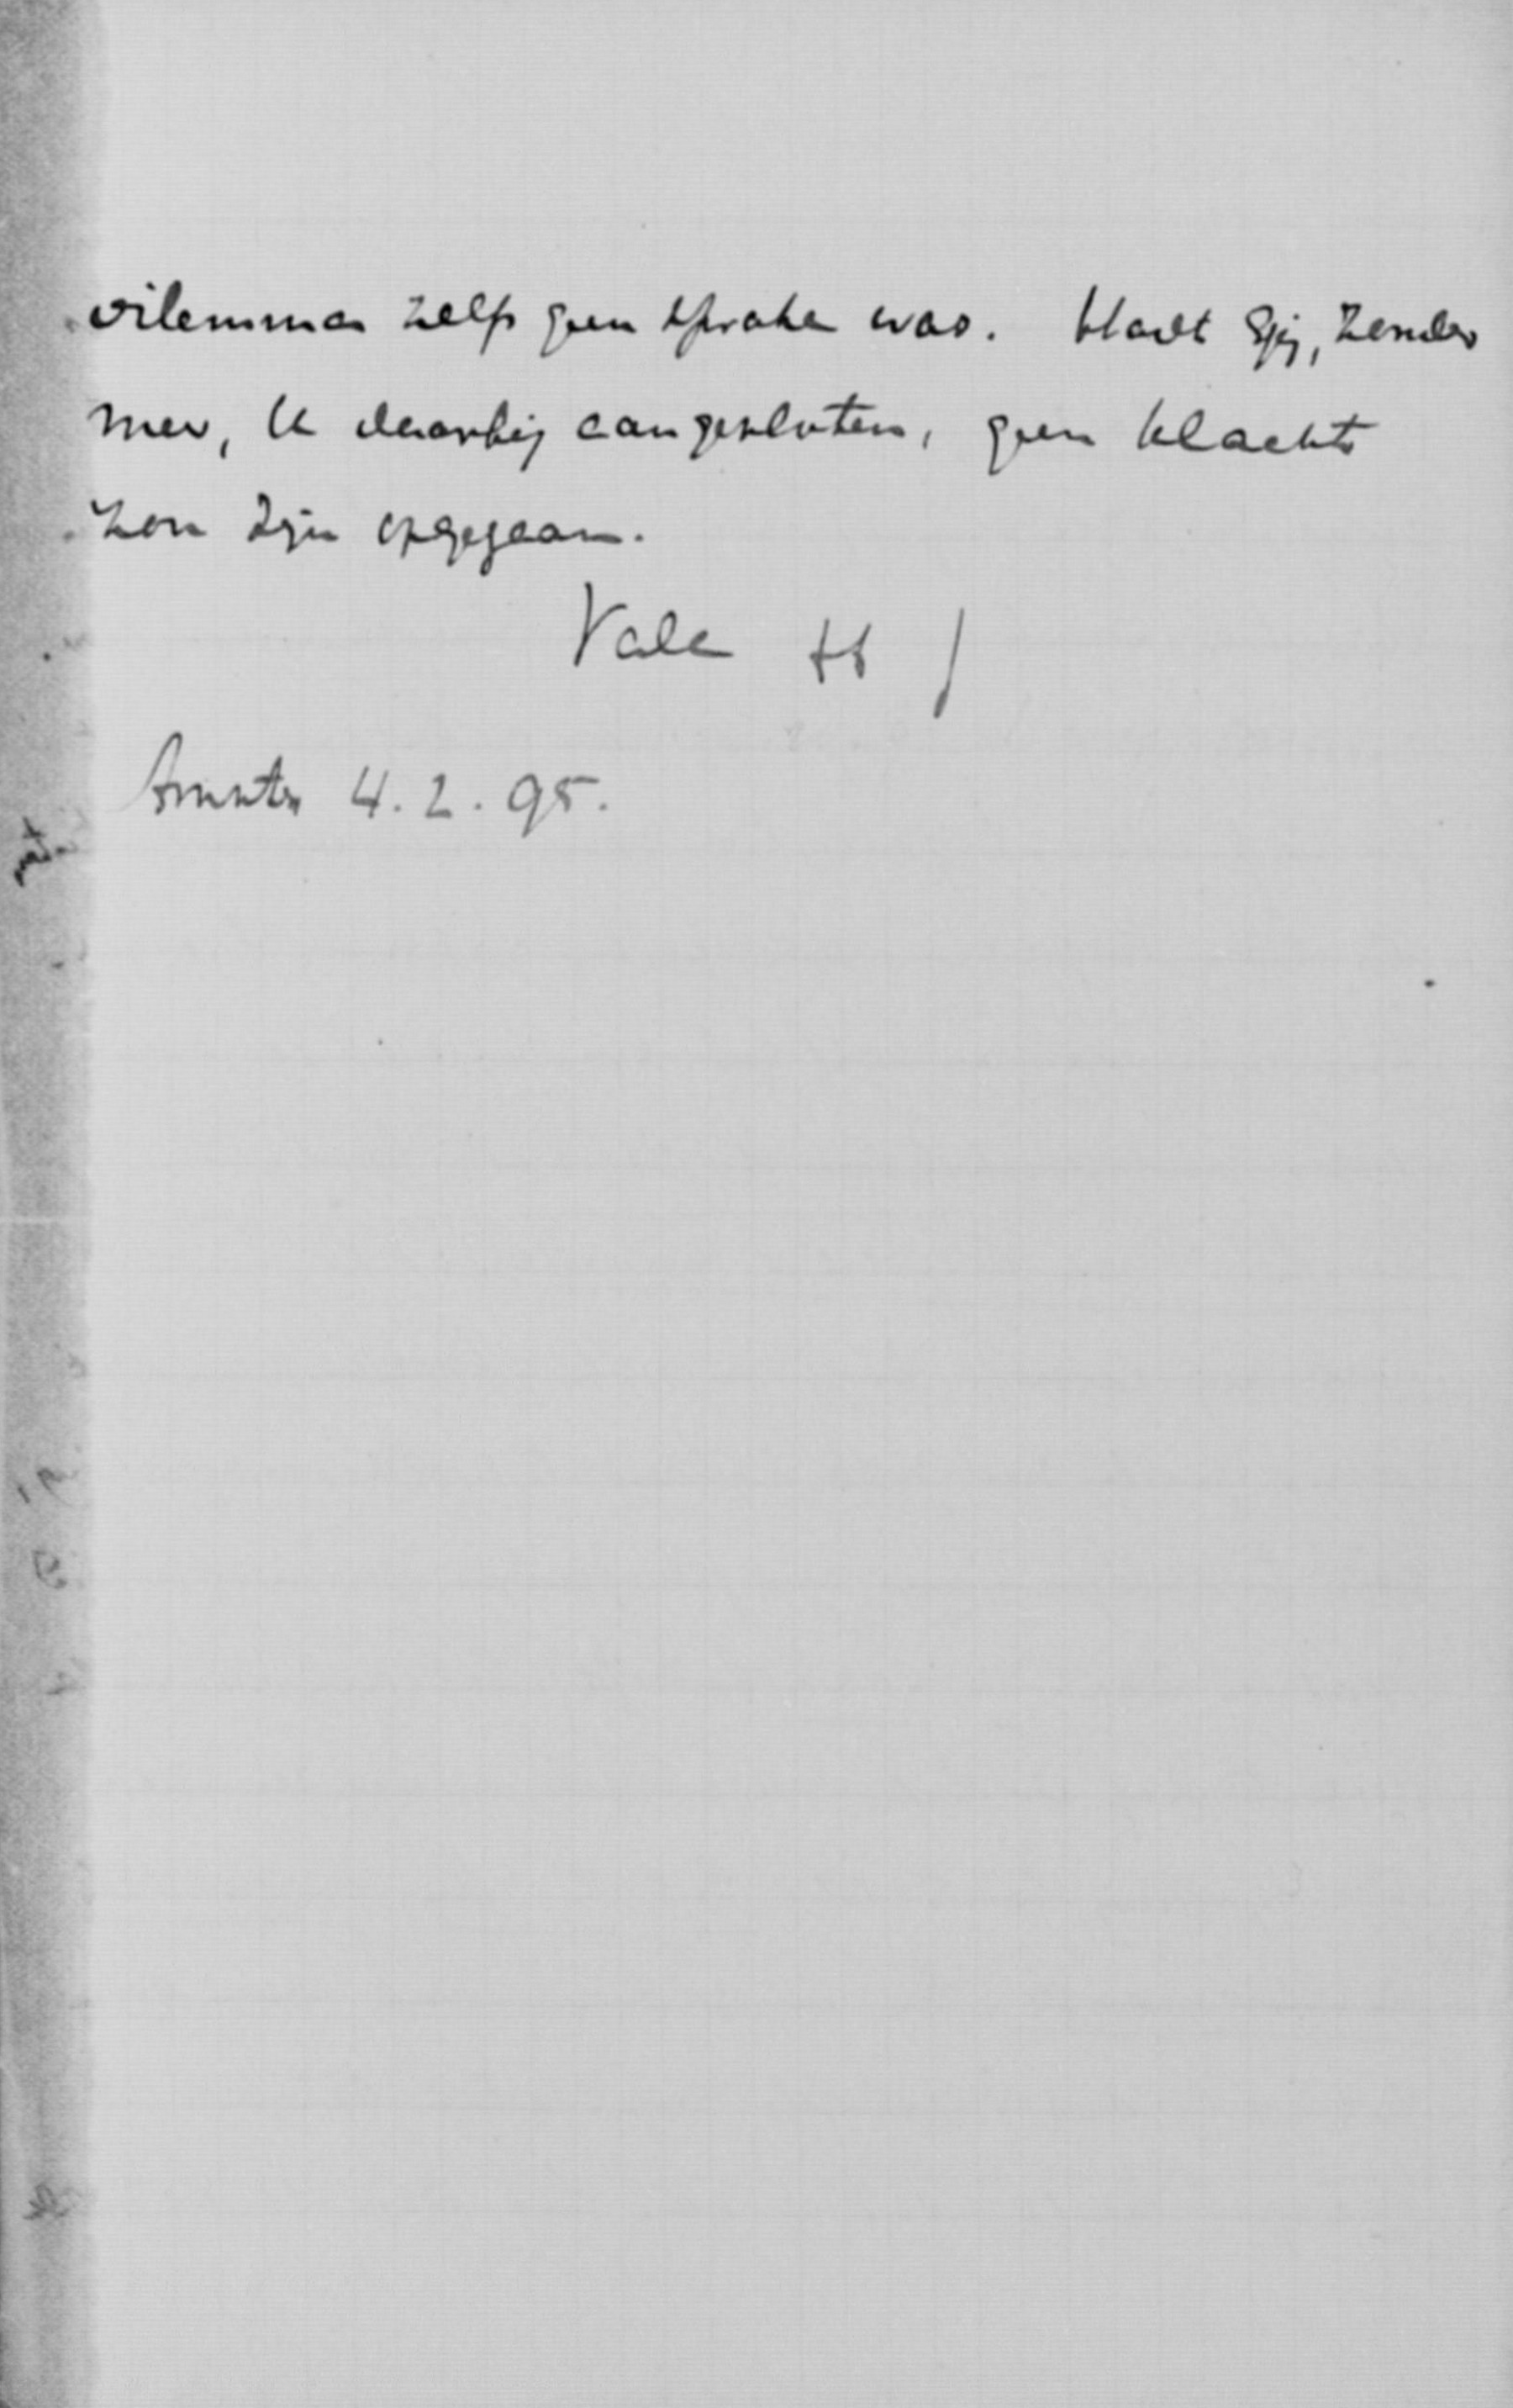 dilemma zelf geen sprake was. Hadt Gij, zonder
meer, U daarbij aangesloten, geen klacht
zou zijn opgegaan.
Vale tt
Amst 4.2.95.